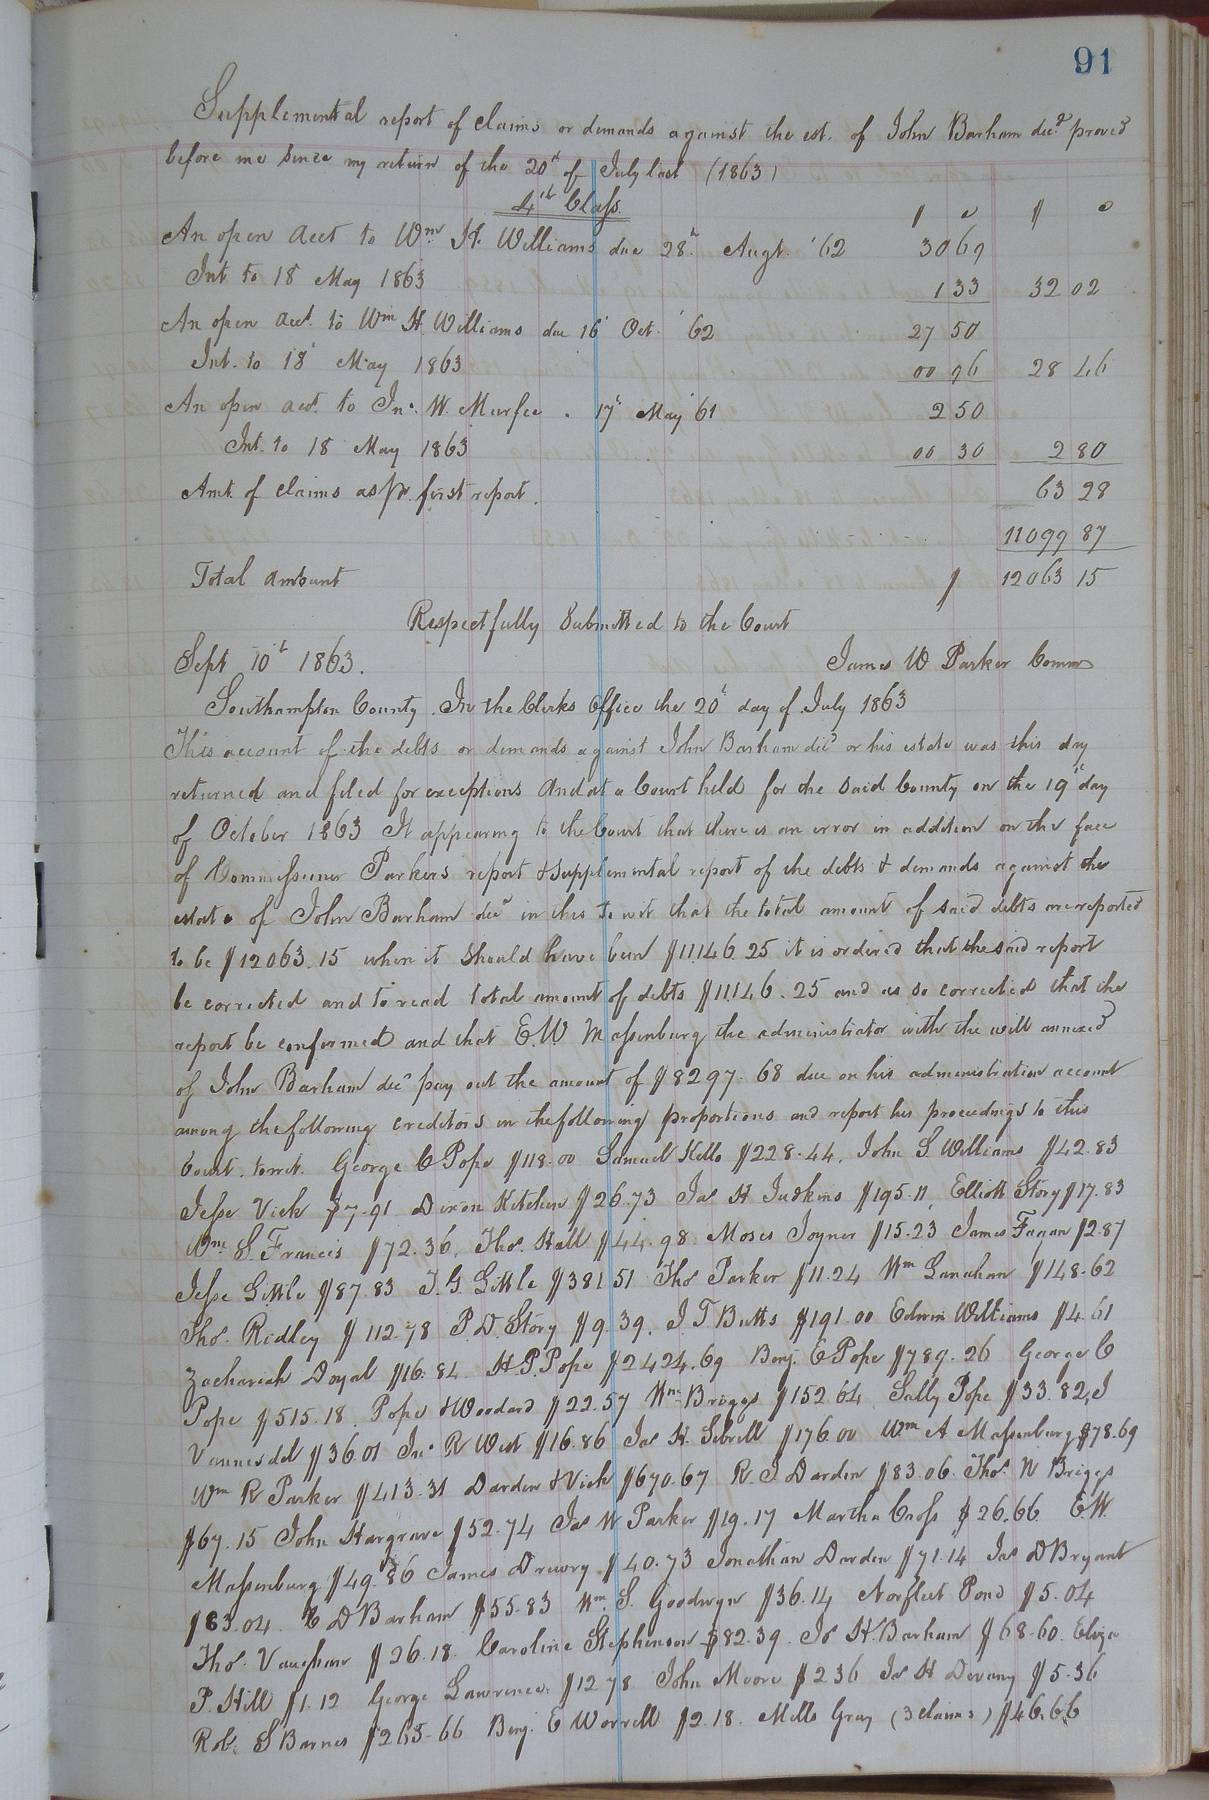 91
Supplemental report of claims or demands against the est. of John Barham decd proved
before me since my return of the 20th of July last (1863)
4th Class.
$ c $ c
An open acct to Wm H. Williams due 28th Augt. '62 30 69
Int to 18 May 1863 1 33 32 02
An open acct. to Wm H. Williams due 16th Oct. '62 27 50
Int. to 18th May 1863 00 96 28 46
An open acct. to Jno. W. Murfee . 17th May '61 2 50
Int. to 18 May 1863 00 30 2 80
Amt. of claims as pr. first report. 63 28
11099 87
Total amount $ 12063 15
Respectfully Submitted to the Court
Sept 10th 1863. James W Parker Commr
Southampton County. In the Clerks Office the 20th day of July 1863
This account of the debts or demands against John Barham decd or his estate was this day
returned and filed for exceptions And at a Court held for the said County on the 19th day
of October 1863 It appearing to the Court that there is an error in addition on the face
of Commissioner Parkers report & supplemental report of the debts & demands against the
estate of John Barham decd in this To wit that the total amount of said debts are reported
to be $12063.15 when it should have been $11146.25 it is ordered that the said report
be corrected and to read total amount of debts $11146.25 and as so corrected that the
report be confirmed and that E.W Massenburg the administrator with the will annexed
of John Barham decd pay out the amount of $8297.68 due on his administration account
among the following creditors in the following proportions and report his proceedings to this
Court. to wit. George C Pope $118.00 Samuel Kello $228.44. John S. Williams $42.83
Jesse Vick $7.91 Dixon Kitchen $26.73 Jas H Judkins $195.11, Elliott Story $17.83
Wm S. Francis $72.36, Thos. Hall $44.98 Moses Joyner $15.23 James Fagan $2.87
Jesse Little $87.83 J. G. Little $381.51 Thos Parker $11.24 Wm Lanahan $148.62
Thos. Ridley $112.78 P. D. Story $9.39. J. T Butts $191.00 Edwin Williams $4.61
Zachariah Doyal $16.84 H. P. Pope $2424.69 Benj. E Pope $789.26 George C
Pope $515.18. Pope & Woodard $22.57 Wm Briggs $152.64 Sally Pope $33.82, J
$36.01 Jno R West $16.86 Jas H. Sebrell $176.00 Wm A Massenburg $78.69
Wm R Parker $413.31 Darden & Vick $670.67 R. J. Darden $83.06. Thos. N Briggs
$67.15 John Hargrave $52.74 Jas W Parker $19.17 Martha Cross $26.66 E.W.
Massenburg $49.86 James Drewry $40.73 Jonathan Darden $71.14 Jas D Bryant
$83.04. D Barham $55.83 Wm. S. Goodwyn $36.14 Norfleet Pond $5.04
Thos. Vaughan $26.18. Caroline Stephenson $82.39. Jos H. Barham $68.60. Eliza
P. Hill $1.12 George Lawrence $12.78 John Moore $2.36 Jas H Devany $5.36
Rob. S Barnes $265.66 Benj. E Worrell $2.18. Mills Gray (3 claims) $46.66